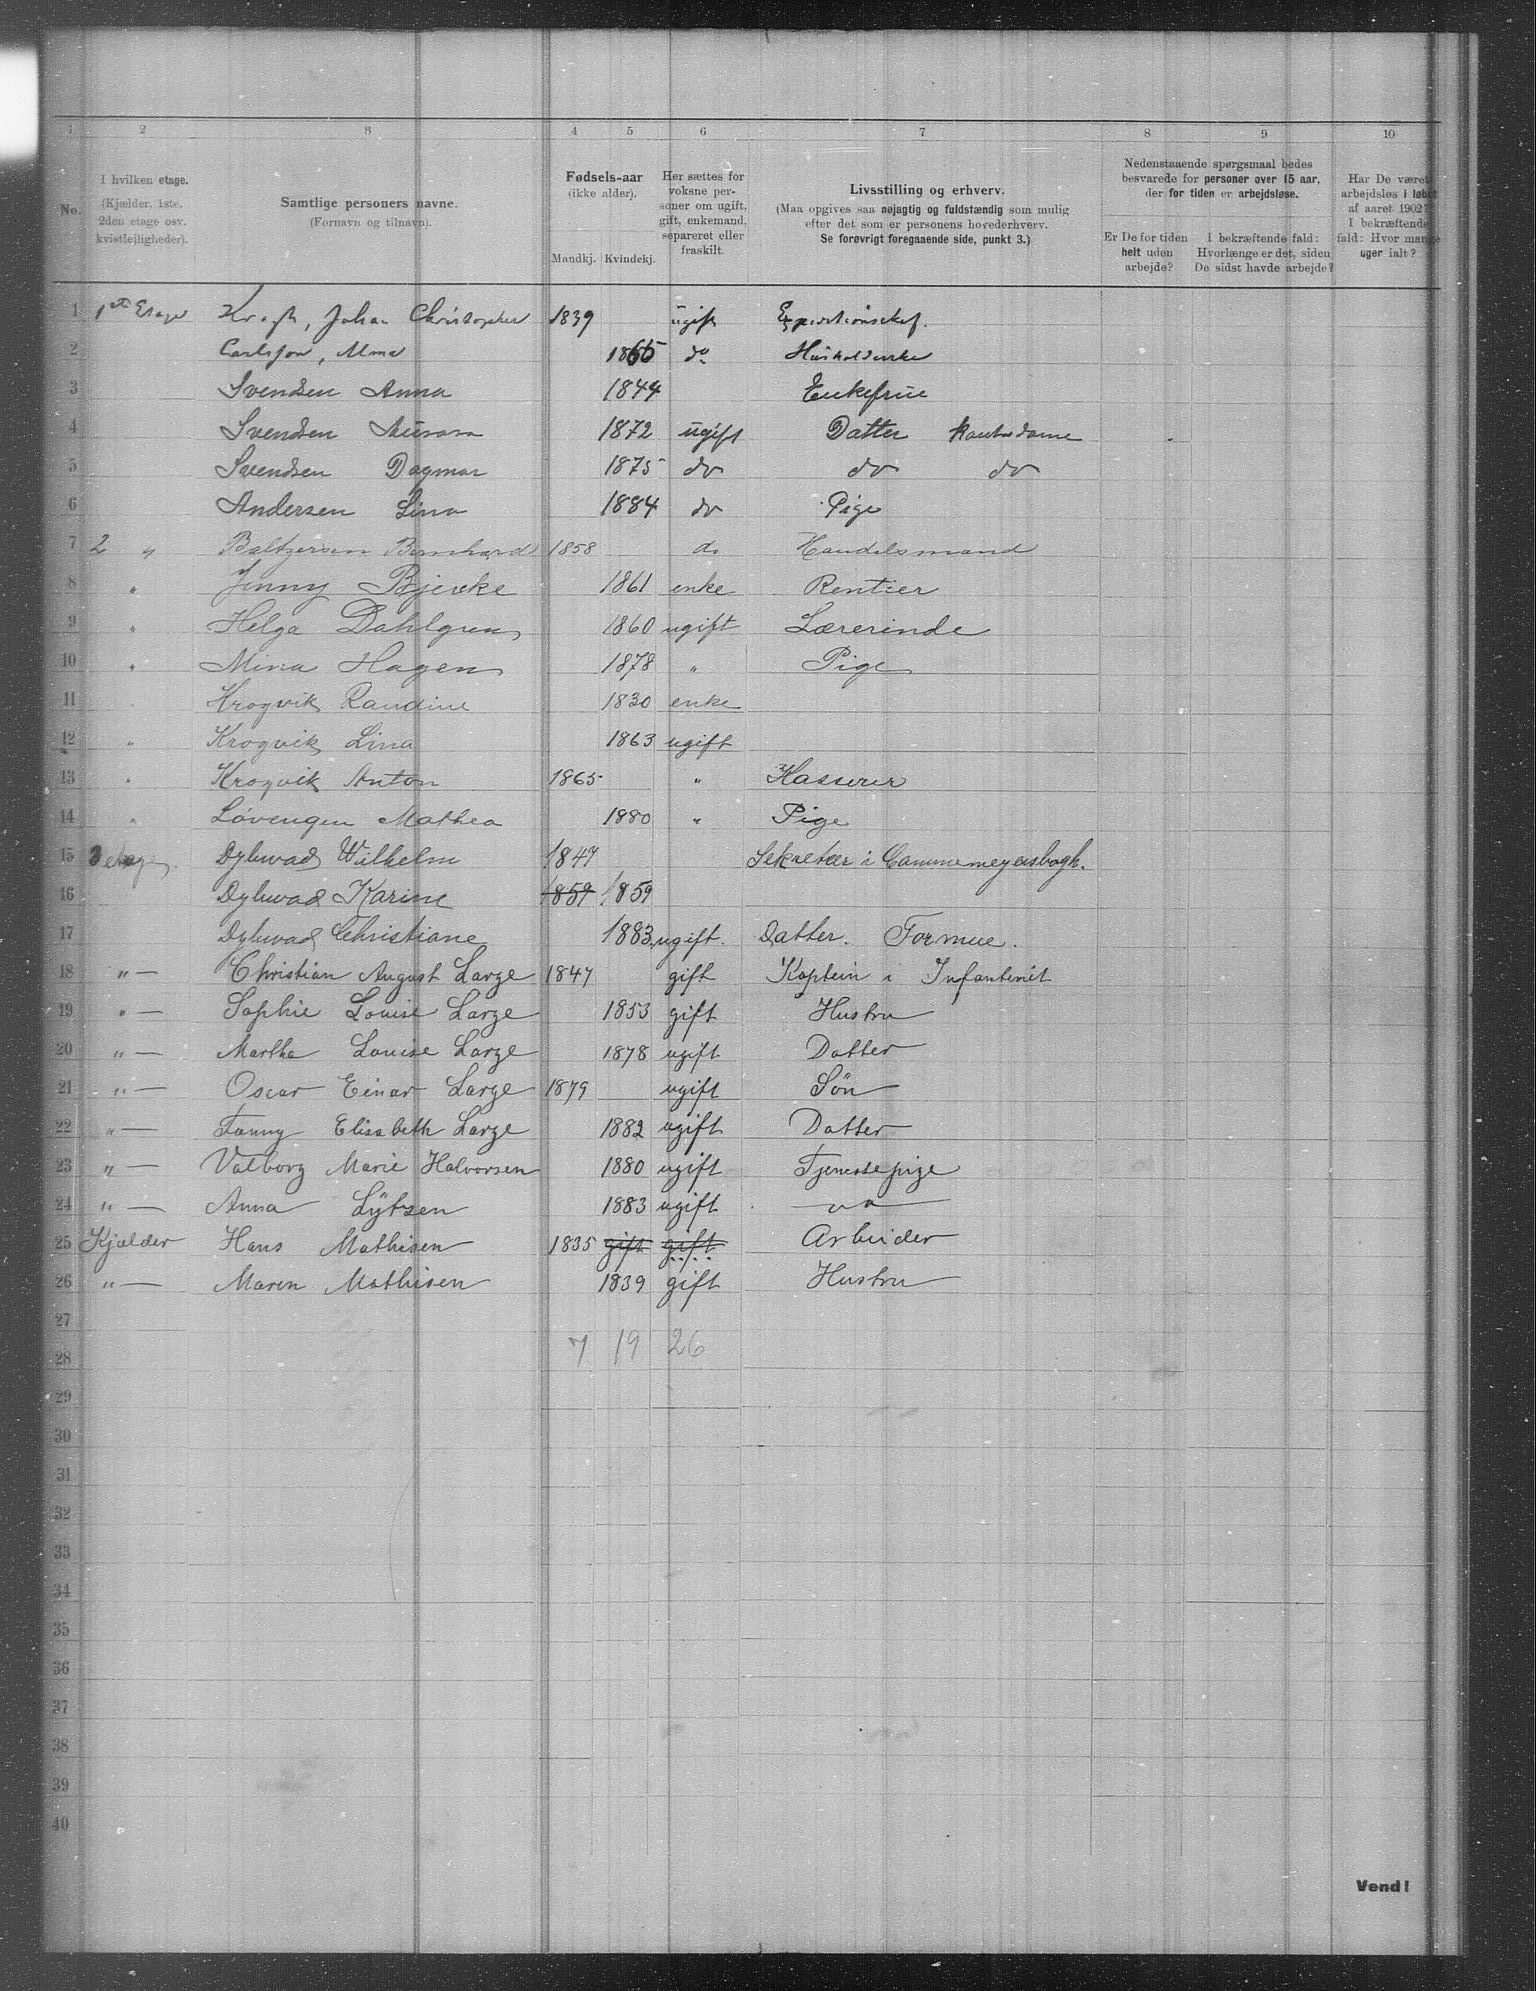 1 2 3 4 5 6 7 8 9 10
No.
I hvilken etage. (Kjælder, 1ste. 2den etage osv. kvistlejligheder).
Samtlige personers navne. (Fornavn og tilnavn).
Fødsels-aar (ikke alder). Mandkj. Kvindekj.
Her sættes for voksne personer om ugift, gift, enkemand, separeret eller fraskilt.
Livsstilling og erhverv. (Maa opgives saa nøjagtig og fuldstændig som mulig efter det som er personens hovederhverv. Se forøvrigt foregaaende side, punkt 3.)
Nedenstaaende spørgsmaal bedes besvarede for personer over 15 aar, der for tiden er arbejdsløse.
Er De for tiden helt uden arbejde?
I bekræftende fald: Hvorlænge er det, siden De sidst havde arbejde?
Har De været arbejdsløs i løbet af aaret 1902? I bekræftende fald: Hvor mange uger ialt?
1 1ste Etage Kragh, Johan Christopher 1839 ugift Expeditionschef.
2 Carlsson, Alma 1865 do Husholderske
3 Svendsen Anna 1844 Enkefrue
4 Svendsen Aurora 1872 ugift Datter Kontordame
5 Svendsen Dagmar 1875 do do do
6 Andersen Lina 1884 do Pige
7 2 " Baltzersen Bernhard 1858 do Handelsmand
8 " Jenny Bjercke 1861 enke Rentier
9 " Helga Dahlgren 1860 ugift Lærerinde
10 " Mina Hagen 1878 " Pige
11 " Krogvik Randine 1830 enke
12 " Krogvik Lina 1863 ugift
13 " Krogvik Anton 1865 " Kasserer
14 " Løvengen Mathea 1880 " Pige
15 3 etage. Dybwad Wilhelm 1847 Sekretær i Cammemeyersbogh.
16 Dybwad Karine 1859 1859
17 Dybwad Christiane 1883 ugift. Datter. Formue.
18 "— Christian August Large 1847 gift Kaptein i Infanteriet
19 "— Sophie Louise Large 1853 gift Hustru
20 "— Martha Louise Large 1878 ugift Datter
21 "— Oscar Einar Large 1879 ugift Søn
22 "— Fanny Elisabeth Large 1882 ugift Datter
23 "— Valborg Marie Halvorsen 1880 ugift Tjenestepige
24 "— Anna Lÿtzen 1883 ugift
25 Kjælder Hans Mathisen 1835 gift gift Arbeider
26 "— Maren Mathisen 1839 gift Hustru
27
7 19 26
28
29
30
31
32
33
34
35
36
37
38
39
40
Vend!